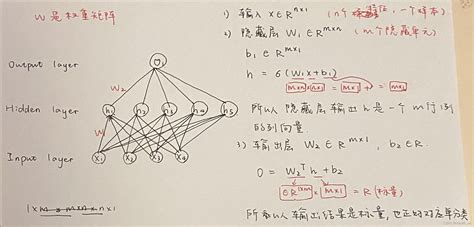 W是权重矩阵
Output layer
O
W₂
Hidden layer
h₁ h₂ h₃ h₄ h₅
W₁
Input layer
x₁ x₂ x₃ x₄
1) 输入 x∈R^{n×1} (n个特征，一个样本)
2) 隐藏层 W₁∈R^{m×n} (m个隐藏单元)
b₁∈R^{m×1}
h = σ(W₁x+b₁)
m×n n×1 = m×1 + = m×1
所以隐藏层输出h是一个m行1列
的列向量
3) 输出层 W₂∈R^{m×1}, b₂∈R
O = W₂ᵀh + b₂
∈R^{1×m} × m×1 = R (标量)
所以输出结果是标量，也正好对应单分类